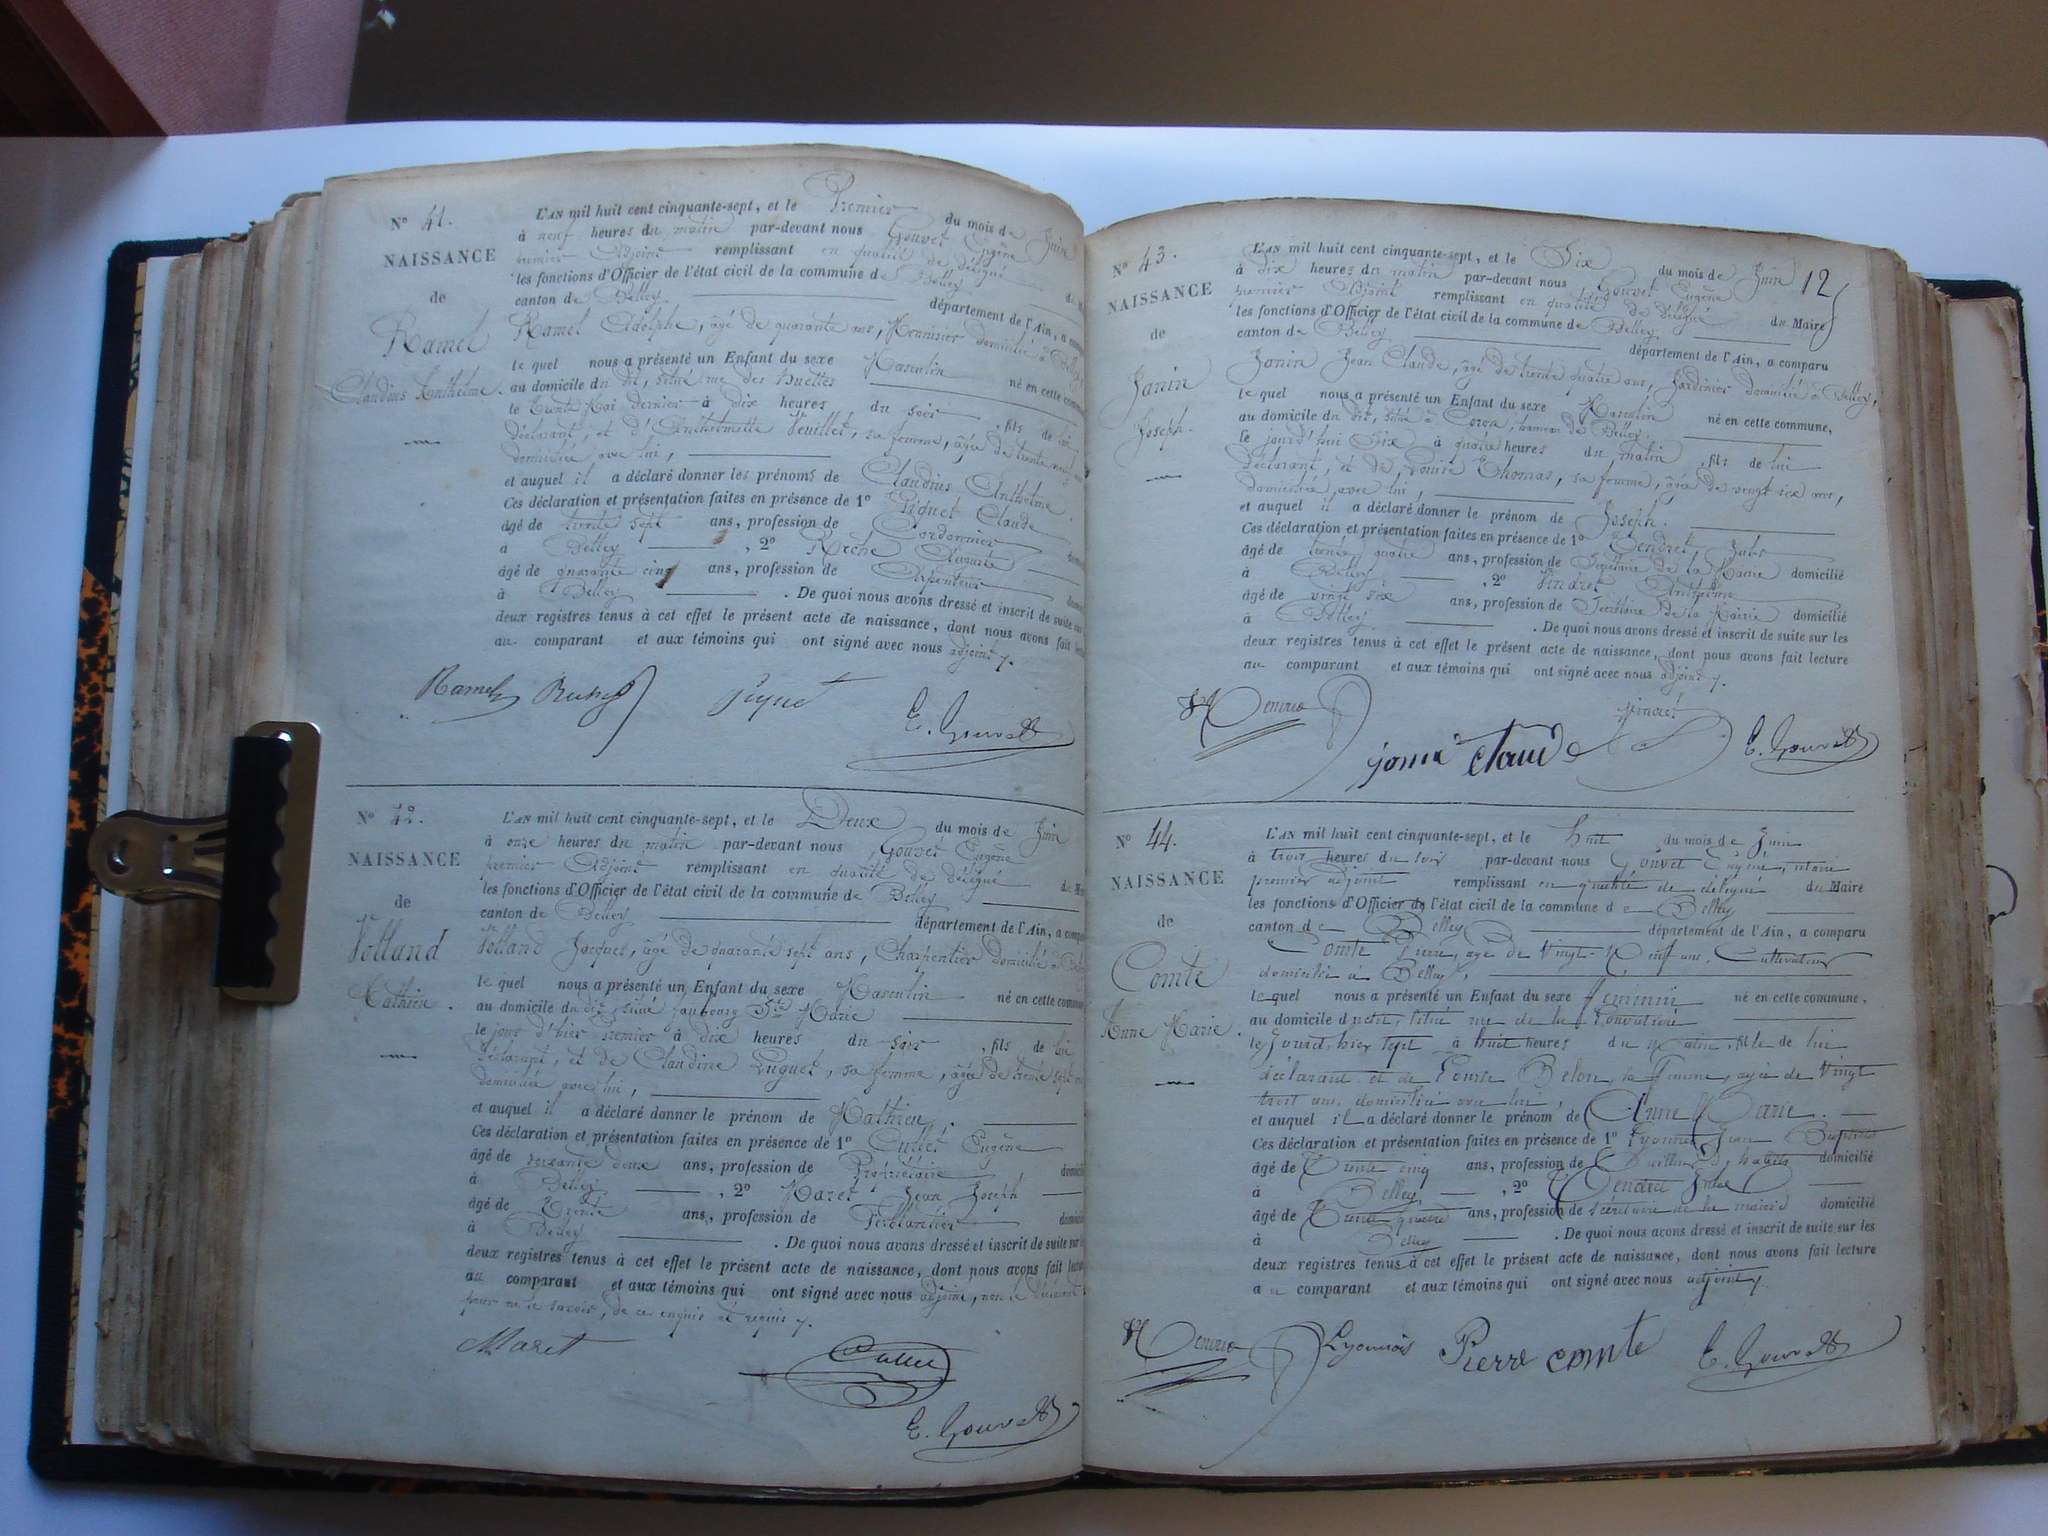 N° 41.
NAISSANCE
de
Ramel
Claudius Anthelme.
L'AN mil huit cent cinquante-sept, et le Premier du mois de Juin
à neuf heures du matin par-devant nous Gouvet Eugène
premier Adjoint remplissant en qualité de délégué
les fonctions d'Officier de l'état civil de la commune de Belley
canton de Belley département de l'Ain, a comparu
Ramel Adolphe, âgé de quarante ans, Menuisier domicilié à Belley
le quel nous a présenté un Enfant du sexe Masculin né en cette commune
au domicile du dit, situé rue des
le trente Mai dernier à dix heures du soir, fils de lui
déclarant, et d'Anthelmette Veuillet, sa femme, âgée de trente
domiciliée avec lui,
et auquel il a déclaré donner les prénoms de Claudius Anthelme.
Ces déclaration et présentation faites en présence de 1° Piquet Claude
âgé de trente sept ans, profession de Cordonnier
à Belley, 2° Roche
âgé de quarante cinq ans, profession de Charpentier
à Belley. De quoi nous avons dressé et inscrit de suite sur
deux registres tenus à cet effet le présent acte de naissance, dont nous avons fait
au comparant et aux témoins qui ont signé avec nous adjoint
Ramel Piquet E. Gouvet
N° 42.
NAISSANCE
de
Volland
Mathieu.
L'AN mil huit cent cinquante-sept, et le Deux du mois de Juin
à onze heures du matin par-devant nous Gouvet Eugène
premier Adjoint remplissant en qualité de délégué
les fonctions d'Officier de l'état civil de la commune de Belley
canton de Belley département de l'Ain, a comparu
Volland Jacques, âgé de quarante sept ans, Charpentier domicilié à
le quel nous a présenté un Enfant du sexe Masculin né en cette commune
au domicile du dit, situé faubourg Ste Marie
le jour d'hier premier à dix heures du soir, fils de lui
déclarant, et de Claudine Luguet, sa femme, âgée de trente sept
domiciliée avec lui,
et auquel il a déclaré donner le prénom de Mathieu.
Ces déclaration et présentation faites en présence de 1° Cullet Eugène
âgé de soixante douze ans, profession de Propriétaire
à Belley, 2° Maret Jean Joseph
âgé de Trente ans, profession de Ferblantier
à Belley. De quoi nous avons dressé et inscrit de suite sur
deux registres tenus à cet effet le présent acte de naissance, dont nous avons fait
au comparant et aux témoins qui ont signé avec nous adjoint, non le
pour ne le savoir, de ce enquis et requis
Maret Cullet
E. Gouvet
12
N° 43.
NAISSANCE
de
Janin
Joseph.
L'AN mil huit cent cinquante-sept, et le Six du mois de Juin
à dix heures du matin par-devant nous Gouvet Eugène
premier Adjoint remplissant en qualité de délégué du Maire
les fonctions d'Officier de l'état civil de la commune de Belley
canton de Belley département de l'Ain, a comparu
Janin Jean Claude, âgé de trente quatre ans, Jardinier domicilié à Belley,
le quel nous a présenté un Enfant du sexe Masculin né en cette commune,
au domicile du dit, situé à hameau de Belley
le jourd'hui Six à quatre heures du matin, fils de lui
déclarant, et de Louise Thomas, sa femme, âgée de vingt six ans,
domiciliée avec lui,
et auquel il a déclaré donner le prénom de Joseph.
Ces déclaration et présentation faites en présence de 1° Jules
âgé de trente quatre ans, profession de Secrétaire de la Mairie domicilié
à Belley, 2° Anthelme
âgé de vingt six ans, profession de Secrétaire de la Mairie domicilié
à Belley. De quoi nous avons dressé et inscrit de suite sur les
deux registres tenus à cet effet le présent acte de naissance, dont nous avons fait lecture
au comparant et aux témoins qui ont signé avec nous adjoint
janin claude E. Gouvet
N° 44.
NAISSANCE
de
Comte
Anne Marie.
L'AN mil huit cent cinquante-sept, et le huit du mois de Juin
à trois heures du soir par-devant nous Gouvet Eugène, notaire
premier adjoint remplissant en qualité de délégué du Maire
les fonctions d'Officier de l'état civil de la commune de Belley
canton de Belley département de l'Ain, a comparu
Comte Pierre, âgé de Vingt-Neuf ans, Cultivateur
domicilié à Belley,
le quel nous a présenté un Enfant du sexe féminin né en cette commune,
au domicile situé rue de la
le jourd'hier sept à huit heures du Matin, fille de lui
déclarant et de Louise Belon, sa femme, âgée de Vingt
trois ans, domiciliée avec lui,
et auquel il a déclaré donner le prénom de Anne Marie.
Ces déclaration et présentation faites en présence de 1° Lyonnois Jean Baptiste
âgé de Trente cinq ans, profession de domicilié
à Belley, 2° Jules
âgé de Trente quatre ans, profession de secrétaire de la mairie domicilié
à Belley. De quoi nous avons dressé et inscrit de suite sur les
deux registres tenus à cet effet le présent acte de naissance, dont nous avons fait lecture
au comparant et aux témoins qui ont signé avec nous adjoint
Lyonnois Pierre comte E. Gouvet